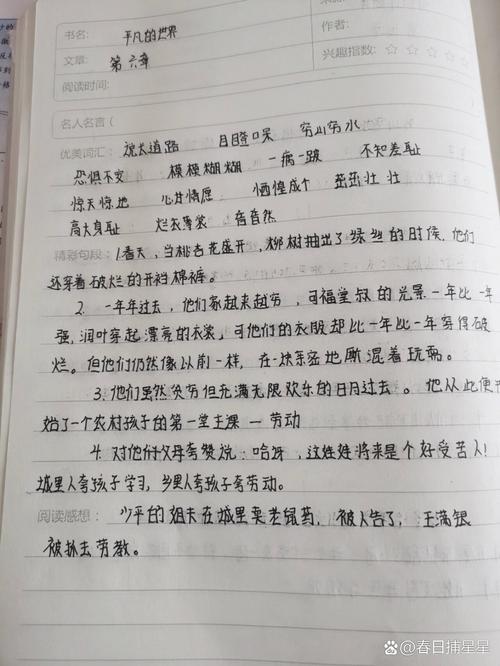 书名: 平凡的世界
作者:
文章: 第六章
兴趣指数: ☆☆☆☆
阅读时间:
名人名言(
优美词汇: 说长道路 目瞪口呆 穷山穷水
恐惧不安 模模糊糊 一瘸一跛 不知羞耻
惊天惊地 心甘情愿 恓惶成个 茁茁壮壮
高大身 烂衣薄裳 杳杳然
精彩句段: 1.春天,当桃杏花盛开,柳树抽出了绿丝的时候,他们
还穿着破烂的开裆棉裤。
2. 一年年过去,他们家越来越穷,可福堂叔的光景一年比一年
强,润叶穿起漂亮的衣裳,可他们的衣服却比一年比一年穿得破
烂。但他们仍然像以前一样,在一块亲密地厮混着玩耍。
3.他们虽然贫穷但充满无限欢乐的日月过去。他从此便开
始了一个农村孩子的第一堂主课 — 劳动
4. 对他们父母夸赞说:哈呀,这娃娃将来是个好受苦人!
城里人夸孩子学习,乡里人夸孩子夸劳动。
阅读感想: 少平的姐夫在城里卖老鼠药,被人告了,王满银
被抓去劳教。
春日捕星星